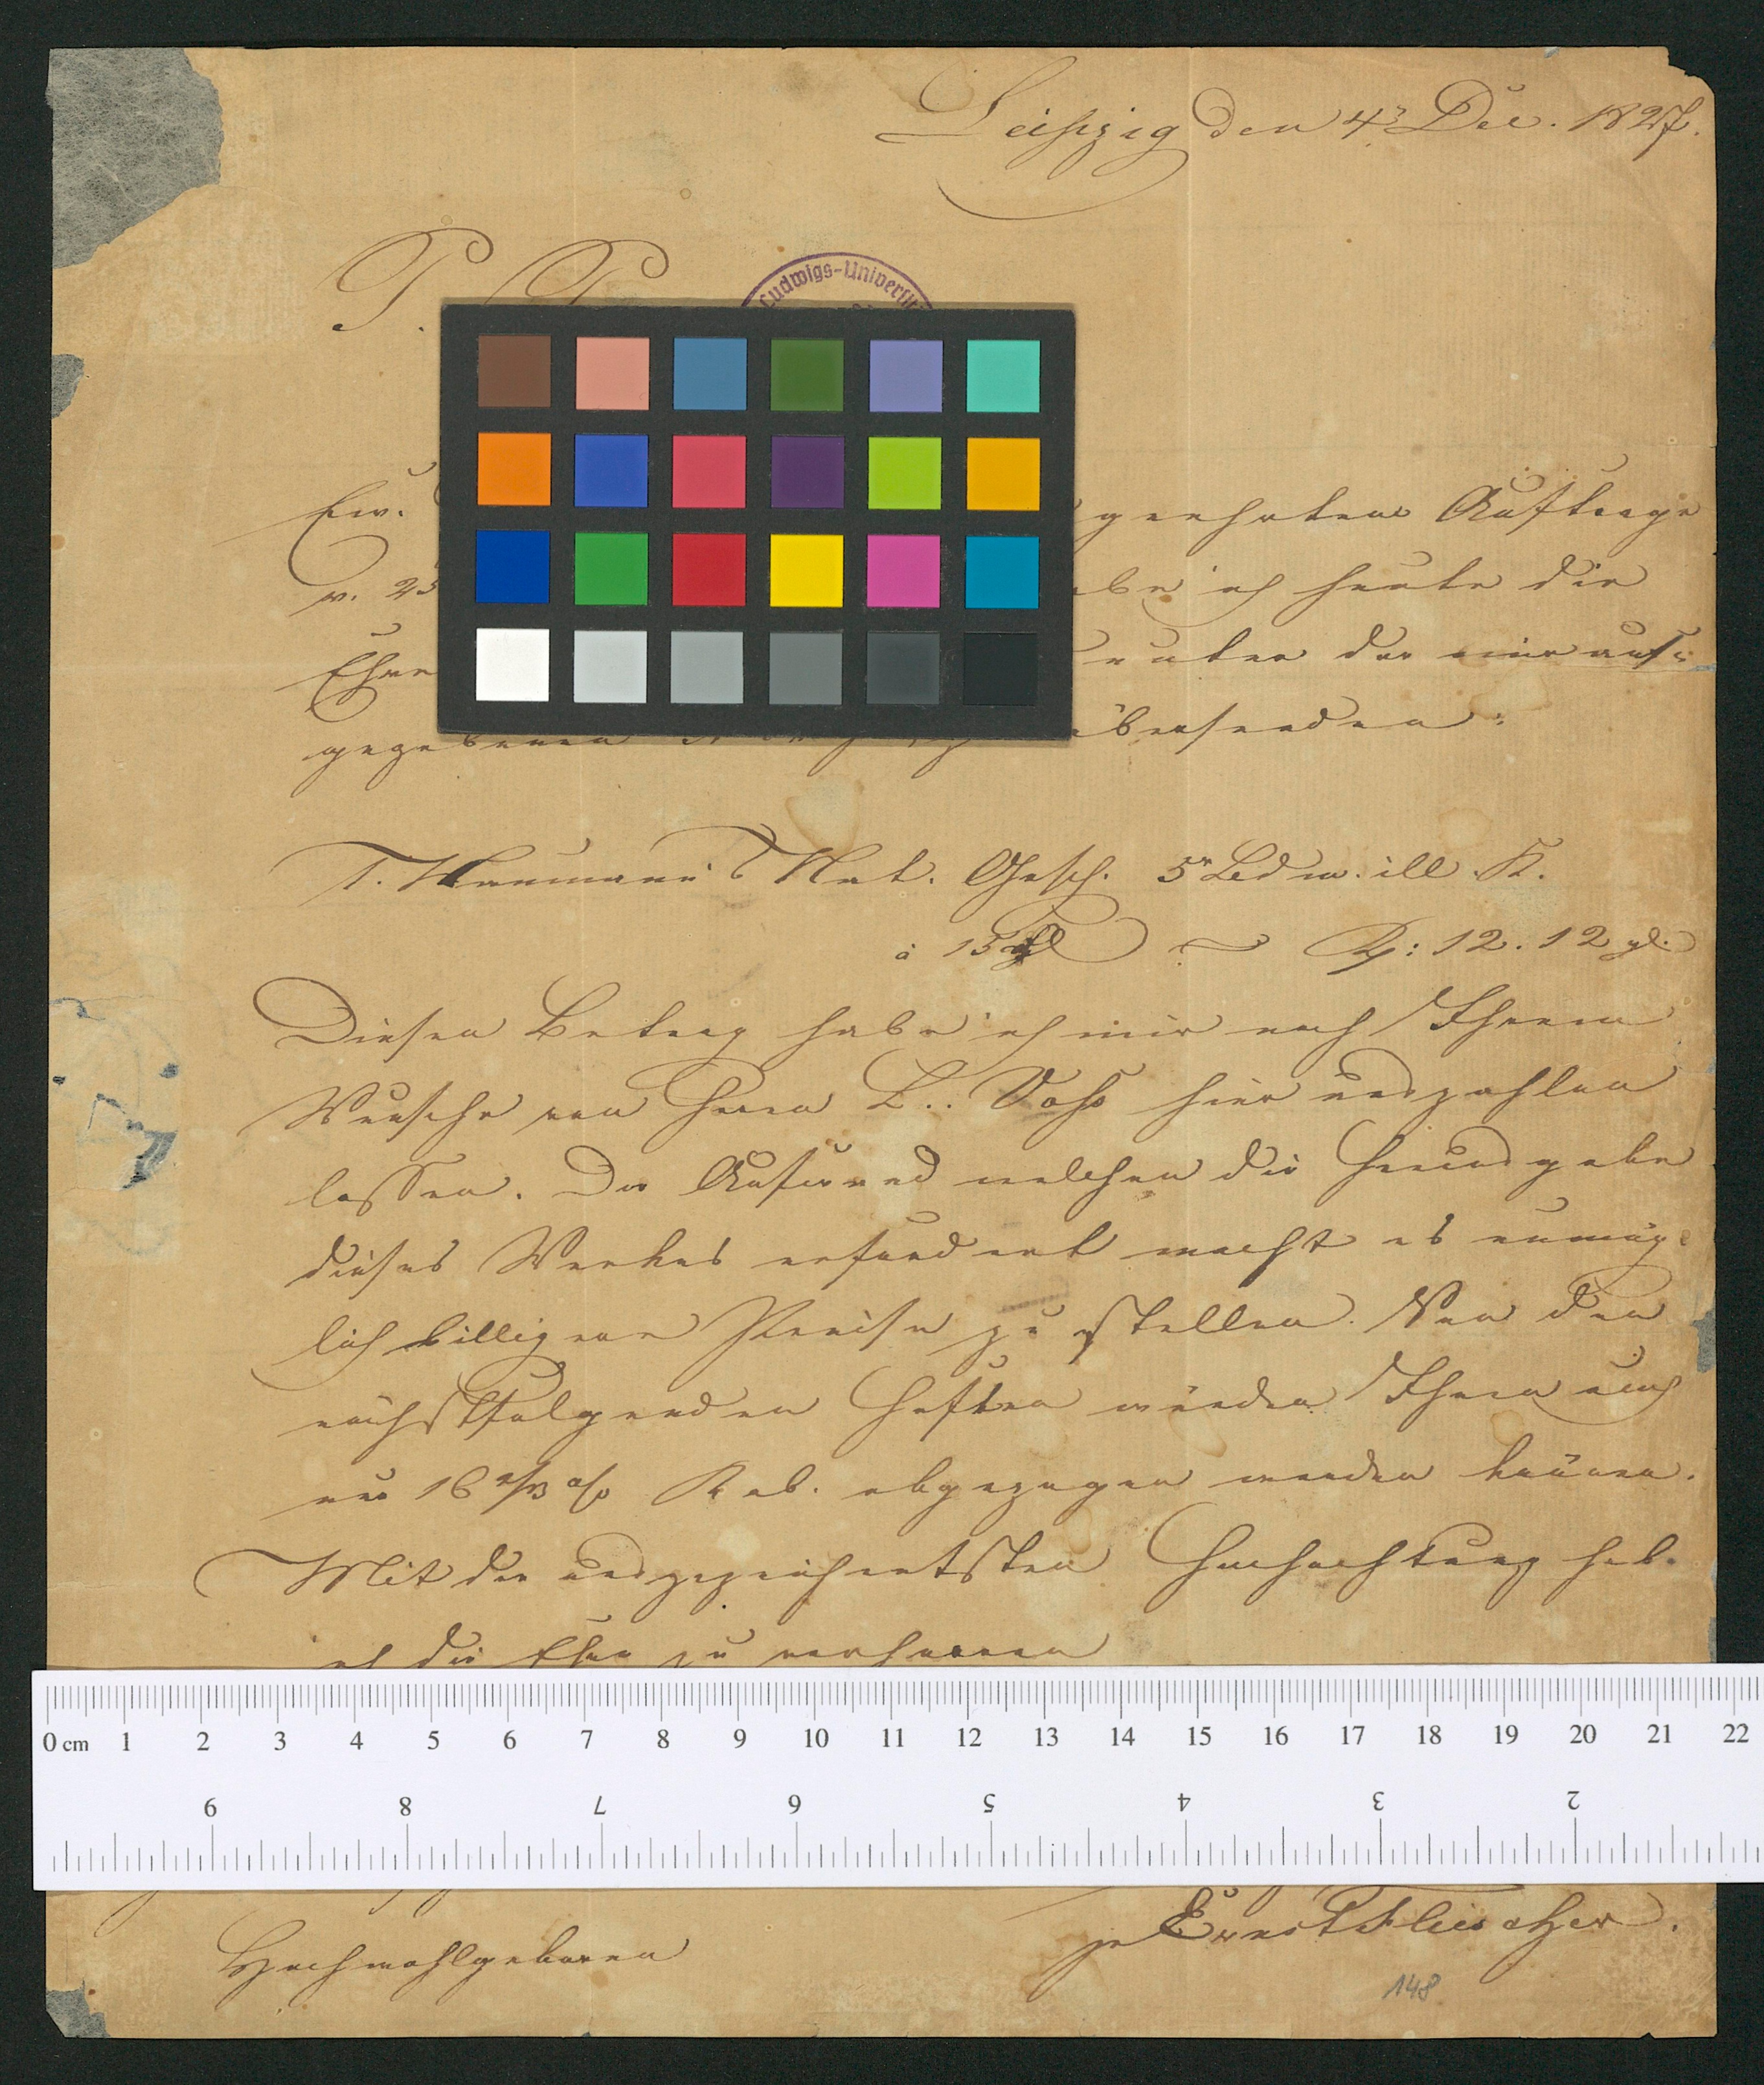 Leipzig den 4r Dec. 1827.
P. P.
Ludwigs-Universit
Ew. geehrten Auftrage
v. 25 habe ich heute die
Ehre unter der mir auf-
gegebenen übersenden:
1. Naumann's Nat. Gesch. 5r Bd m. ill. K.
à 15 12. 12 gl.
Diesen Betrag habe ich mir nach Ihrem
Wunsche von Herrn L. Voß hier auszahlen
lassen. Der Aufwand welchen die Herausgabe
dieses Werkes erfordert macht es unmög-
lich billigere Preise zu stellen. Von den
nächstfolgenden Heften würden Ihnen auch
nur 16 2/3 % Rab. abgezogen werden können.
Mit der ausgezeichnetsten Hochachtung habe
ich die Ehre zu verharren
0 cm 1 2 3 4 5 6 7 8 9 10 11 12 13 14 15 16 17 18 19 20 21 22
9 8 7 6 5 4 3 2
Hochwohlgeboren
Ernst Fleischer.
148